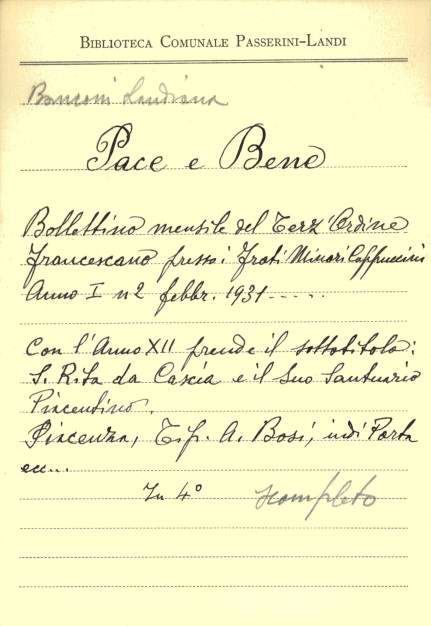 BIBLIOTECA COMUNALE PASSERINI-LANDI
Landiana
Pace e Bene
Bollettino mensile del Terz'Ordine
Francescano presso i Frati Minori Cappuccini
Anno I n 2 febbr. 1931 -----
Con l'Anno XII prende il sottotitolo:
S. Rita da Cascia e il suo Santuario
Piacentino.
Piacenza, Tip. A. Bosi, indi Porta
ecc...
In 4°
incompleto